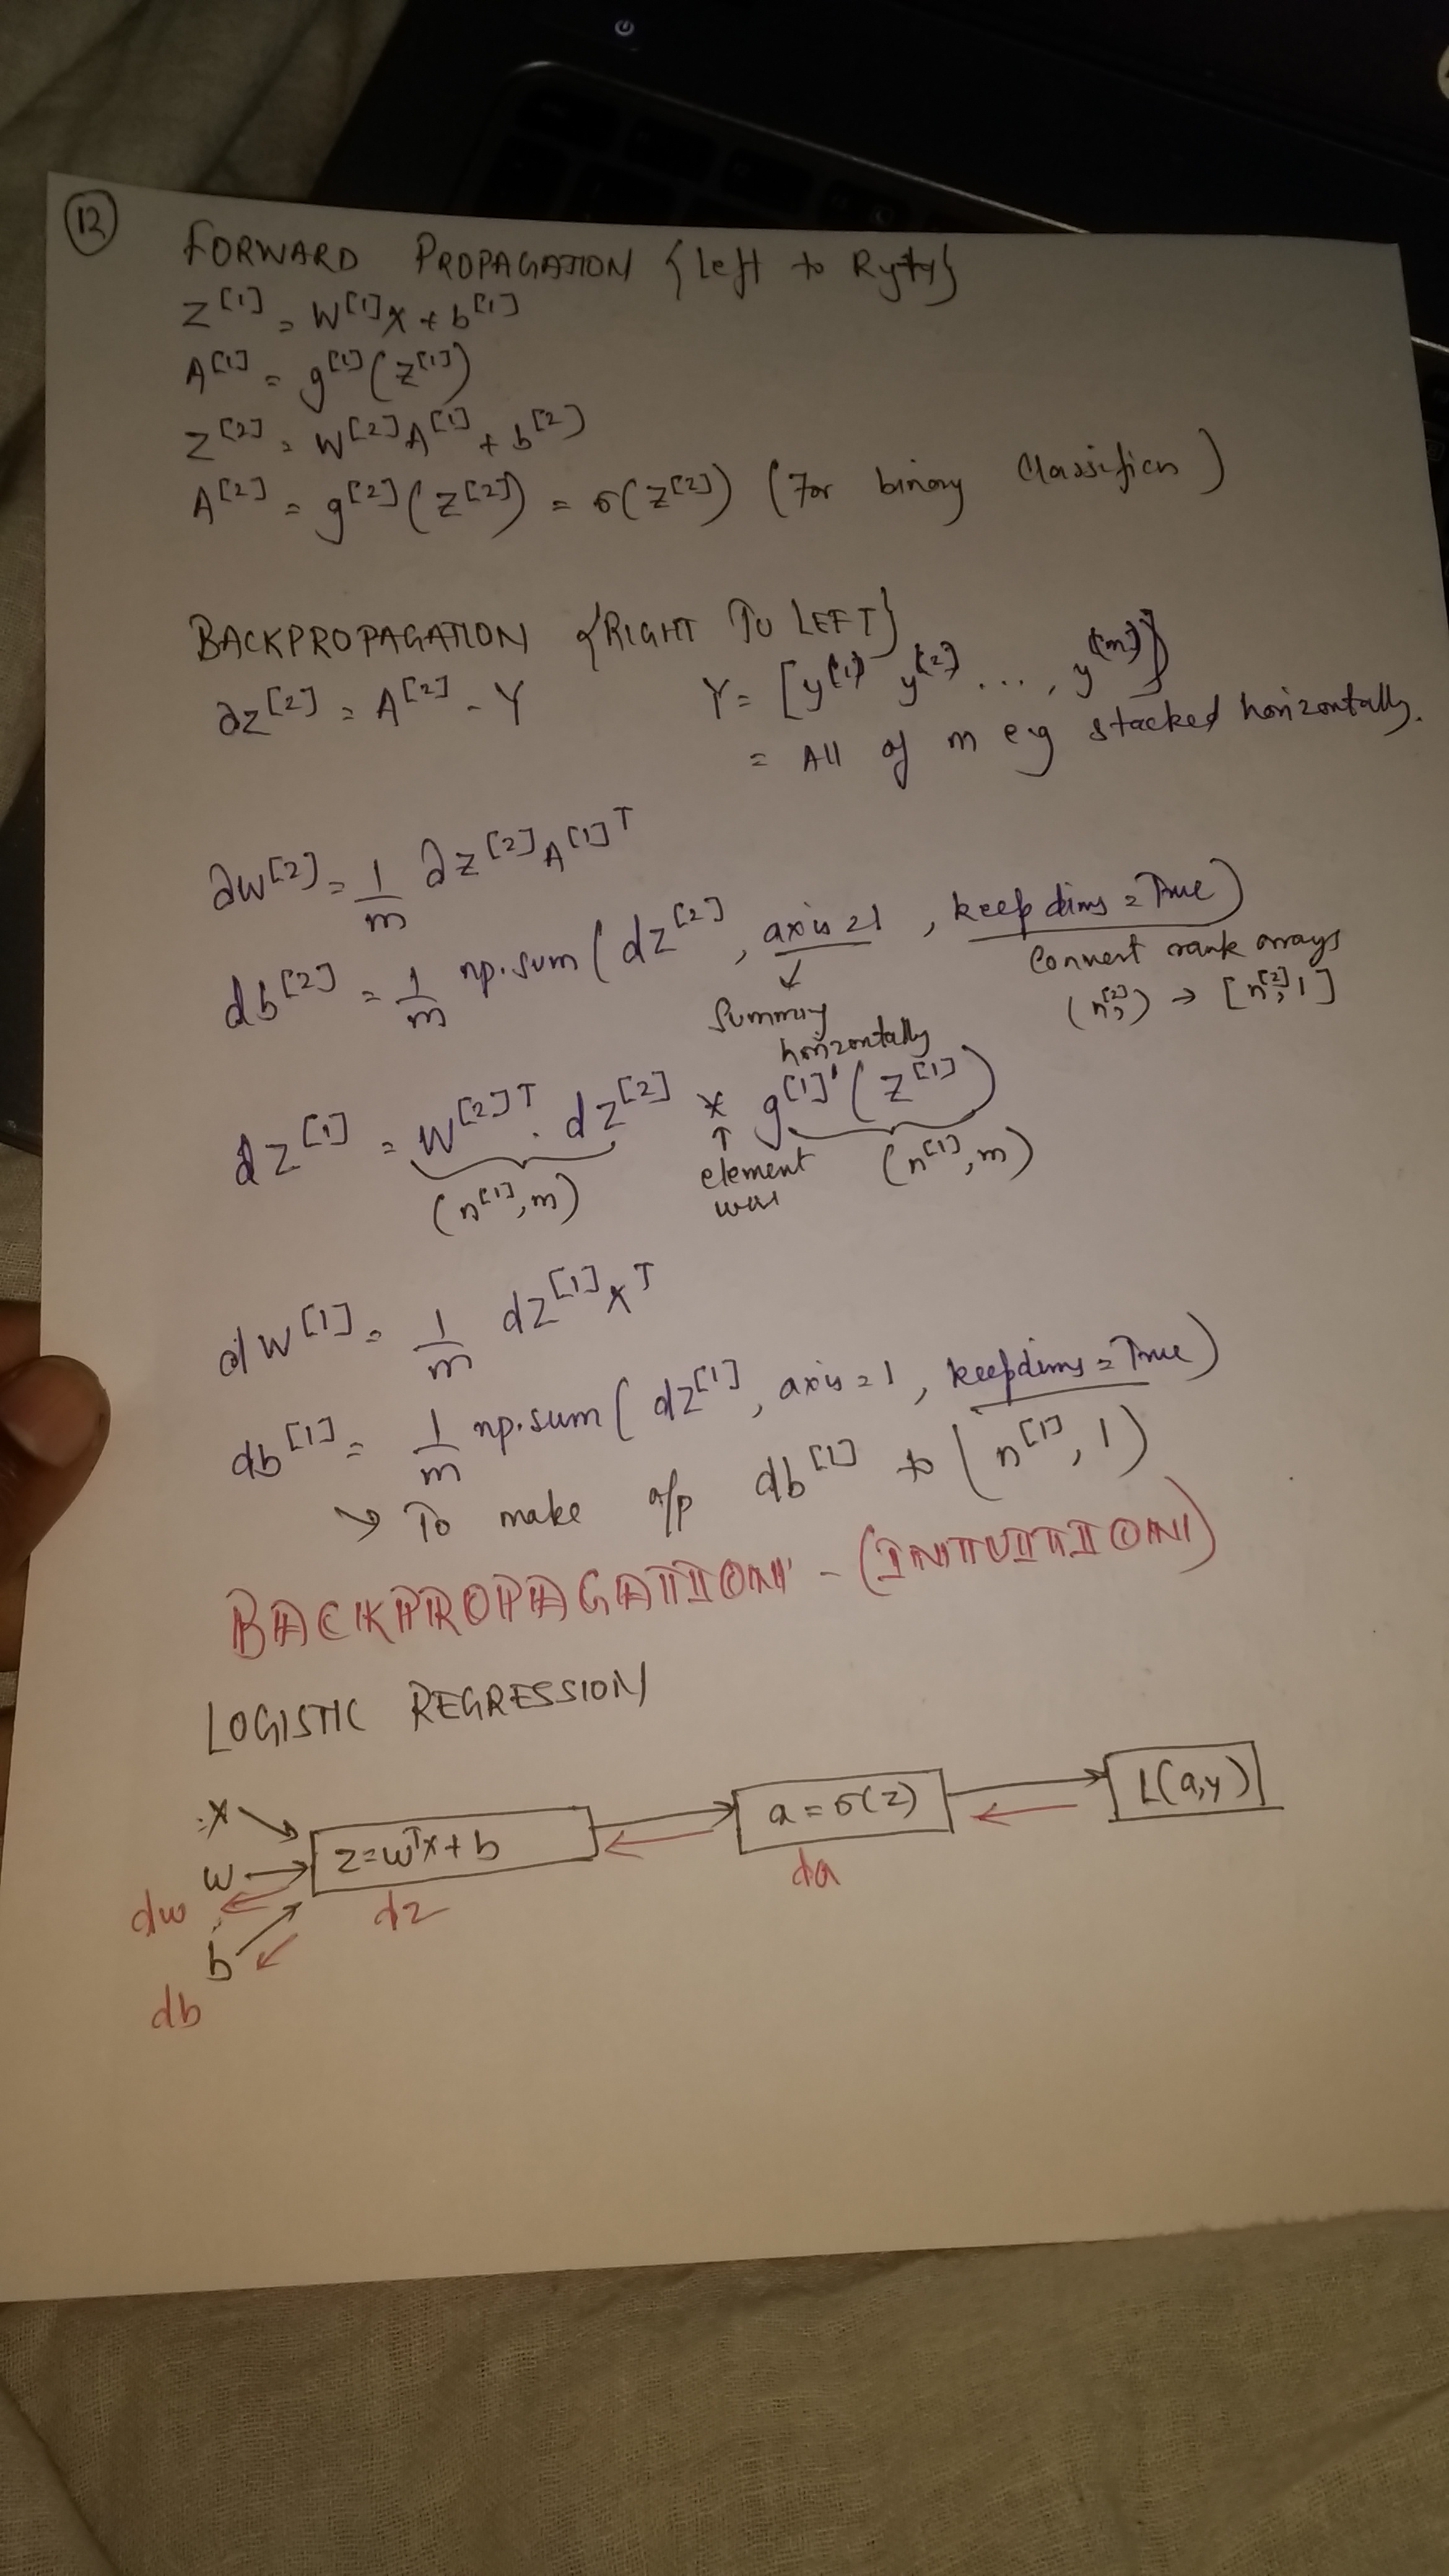 12
FORWARD PROPAGATION {Left to Ryty}
Z^[1] = W^[1]X + b^[1]
A^[1] = g^[1](Z^[1])
Z^[2] = W^[2]A^[1] + b^[2]
A^[2] = g^[2](Z^[2]) = σ(Z^[2]) (For binary Classificn)
BACKPROPAGATION {RIGHT TO LEFT}
∂z^[2] = A^[2] - Y Y = [y^(1) y^(2) ..., y^(m)]
= All of m eg stacked horizontally.
∂w^[2] = 1/m ∂z^[2] A^[1]T
db^[2] = 1/m np.sum(dz^[2], axis=1, keepdims=True)
Summing horizontally
Convert rank arrays
(n^[2],) → [n^[2], 1]
dz^[1] = W^[2]T . dz^[2] * g^[1]'(z^[1])
(n^[1], m) ↑ element (n^[1], m)
dw^[1] = 1/m dz^[1] X^T
db^[1] = 1/m np.sum(dz^[1], axis=1, keepdims=True)
→ To make o/p db^[1] to (n^[1], 1)
BACKPROPAGATION - (INTUITION)
LOGISTIC REGRESSION
x
w
b
z = w^T x + b
a = σ(z)
L(a,y)
dw
db
dz
da